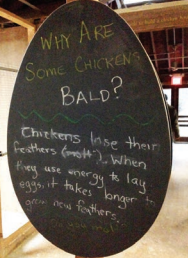 WHY ARE
SOME CHICKENS
BALD?
Chickens lose their
feathers (molt). When
they use energy to lay
eggs, it takes longer to
grow new feathers.